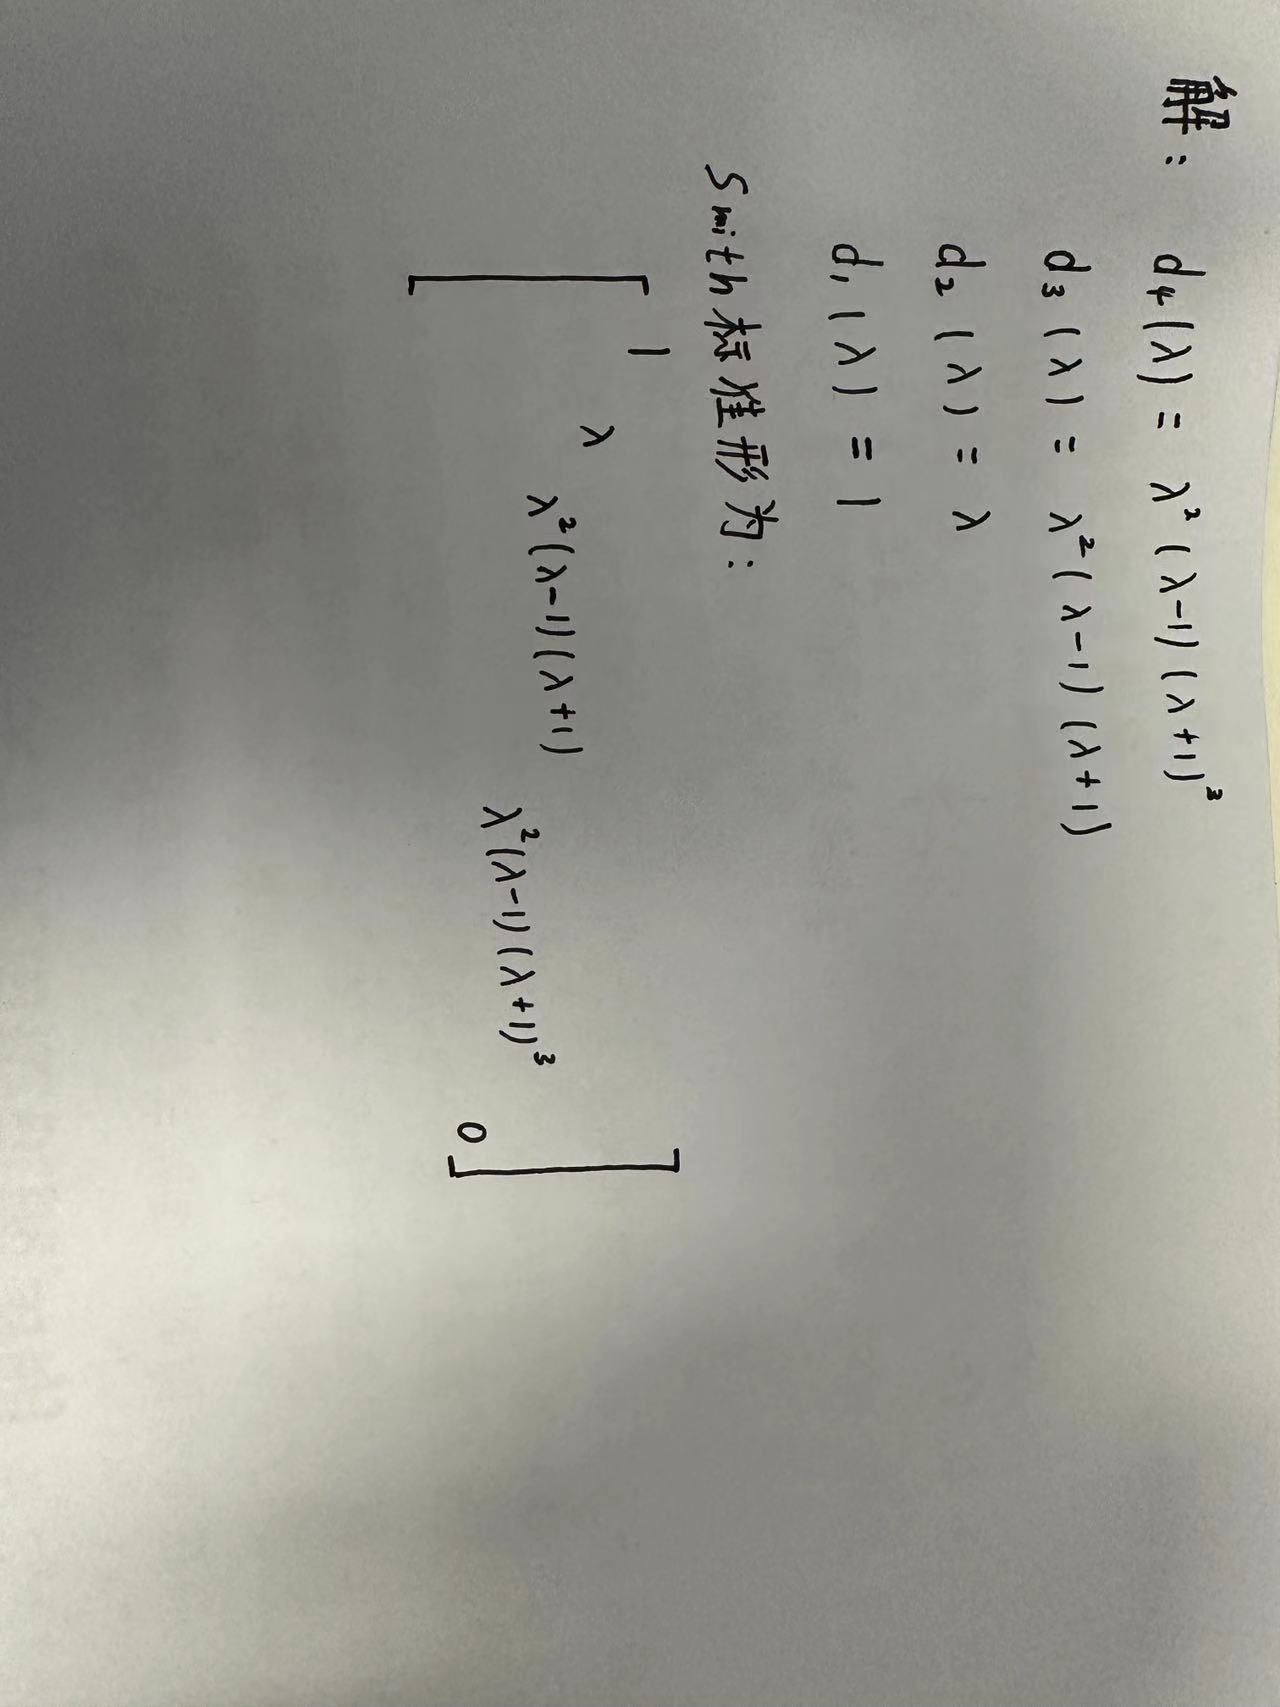 解: d₄(λ) = λ²(λ-1)(λ+1)³
d₃(λ) = λ²(λ-1)(λ+1)
d₂(λ) = λ
d₁(λ) = 1
Smith标准形为:
1
λ
λ²(λ-1)(λ+1)
λ²(λ-1)(λ+1)³
0